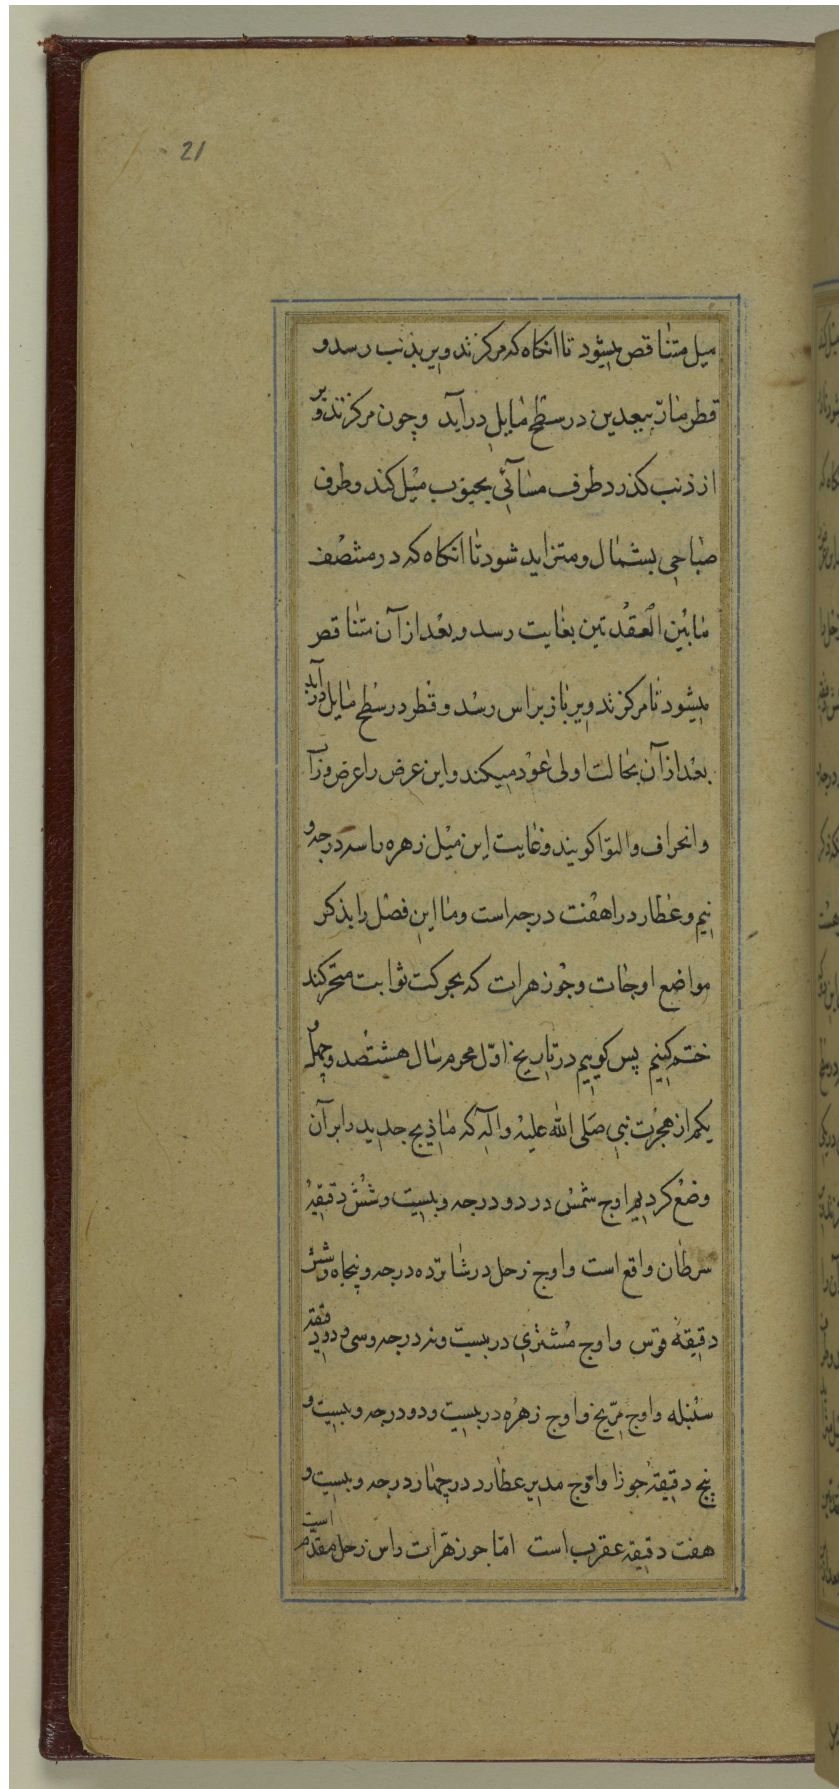 21
میل متناقص میشود تا انکاه که مرکز تدویر بذنب رسد و
قطر مارّ ببعدین در سطح مایل درآید و چون مرکز تدویر
از ذنب کذرد طرف مسائی بجنوب میل کند و طرف
صباحی بشمال و متزاید شود تا انکاه که در منتصف
مابین العقدتین بغایت رسد و بعد از آن متناقص
میشود تا مرکز تدویر باز براس رسد و قطر در سطح مایل درآید
بعد از آن بحالت اولی عود میکند و این عرض را عرض وراب
و انحراف و التوا کویند و غایت این میل زهره را سه درجه و
نیم و عطارد را هفت درجه است و ما این فصل را بذکر
مواضع اوجات و جوزهرات که بحرکت ثوابت متحرکند
ختم کنیم پس کوییم در تاریخ اوّل محرم سال هشتصد و چهل و
یکم از هجرت نبی صلی الله علیه و آله که ما زیج جدید را بر آن
وضع کردیم اوج شمس در دو درجه و بیست و شش دقیقه
سرطان واقع است و اوج زحل در شانزده درجه و پنجاه و شش
دقیقه قوس و اوج مشتری در بیست و نه درجه و سی و دو دقیقه
سنبله و اوج مرّیخ و اوج زهره در بیست و دو درجه و بیست و
پنج دقیقه جوزا و اوج مدیر عطارد در چهار درجه و بیست و
هفت دقیقه عقرب است امّا جوزهرات راس زحل مقدّم است